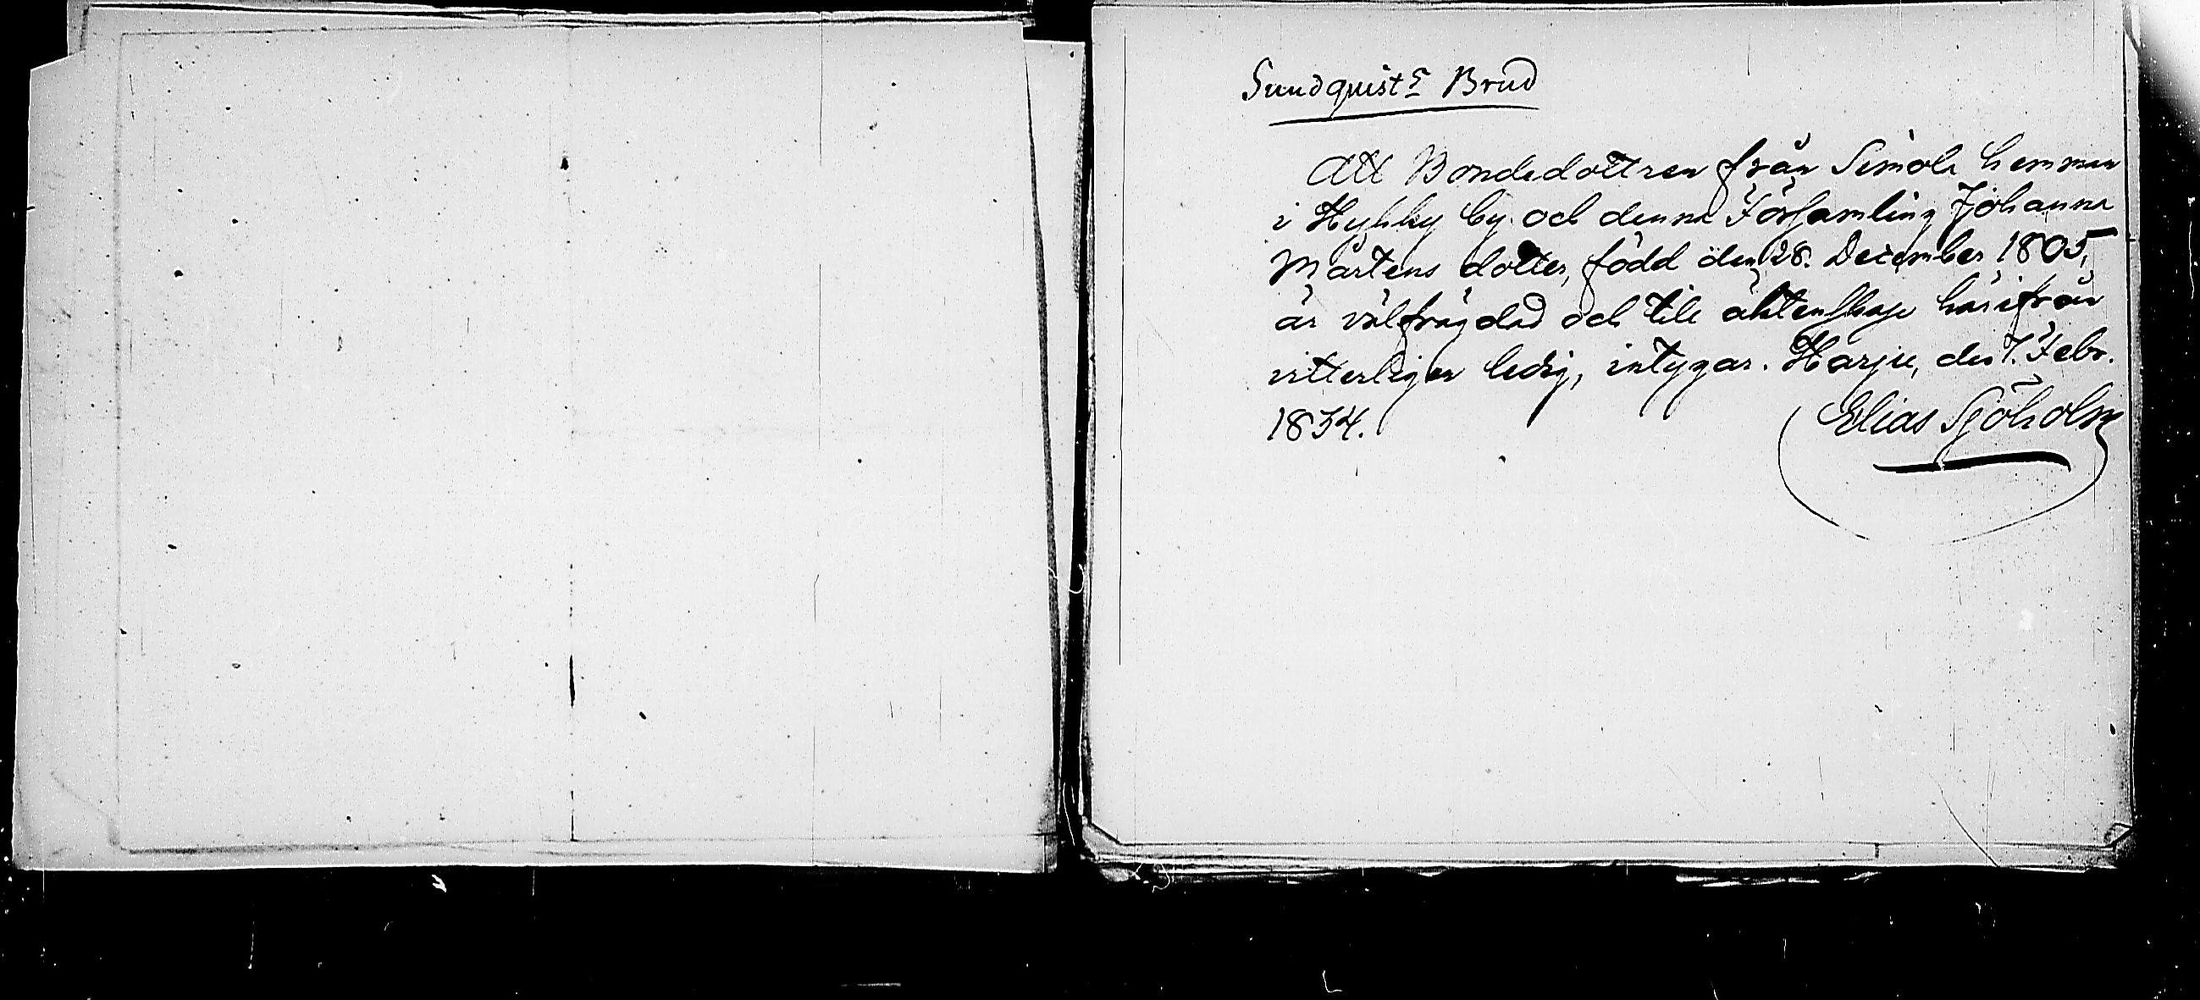 Sundquists Brud
Att Bondedottren från Simola hemman
i Hyhky by och denna Församling Johanna
Mårtens dotter, född den 28. December 1805,
är välfrägdad och till äktenskap härifrån
vitterligen ledig, intygar. Harju, den 7. Febr.
1834.
Elias Sjöholm